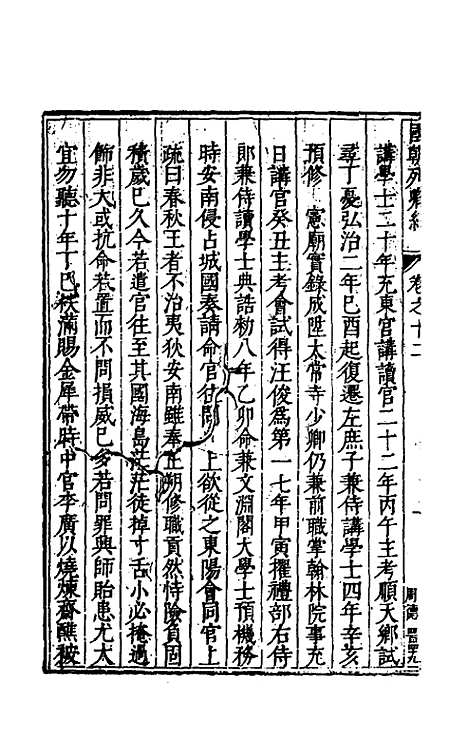 國朝列卿紀 卷之十二
講學士二十年充東宮講讀官二十二年丙午主考順天鄉試
尋丁憂弘治二年巳酉起復遷左庶子兼侍講學士四年辛亥
預修 憲廟實錄成陞太常寺少卿仍兼前職掌翰林院事充
日講官癸丑主考會試得汪俊爲第一七年甲寅擢禮部右侍
郎兼侍讀學士典誥勑八年乙卯命兼文淵閣大學士預機務
時安南侵占城國奏請命官往 上欲從之東陽會同官上
疏曰春秋王者不治夷狄安南雖奉正朔修職貢然恃險負固
積歲巳久今若遣官往至其國海島茫茫徒掉寸舌小必掩過
飾非大或抗命若置而不問損威巳多若問罪興師貽患尤大
宜勿聽十年丁巳秩滿賜金犀帶時中官李廣以燒煉齋醮被